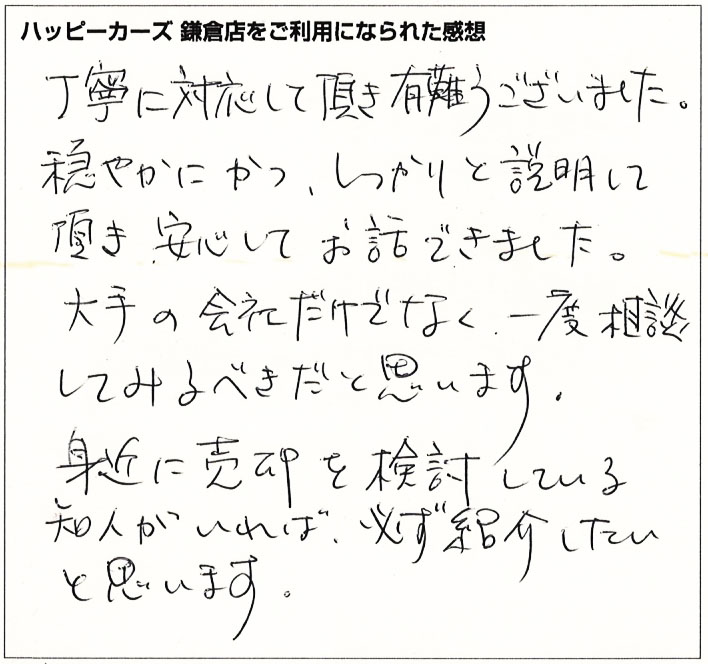 ハッピーカーズ 鎌倉店をご利用になられた感想
丁寧に対応して頂き有難うございました。
穏やかにかつ、しっかりと説明して
頂き、安心してお話できました。
大手の会社だけでなく、一度相談
してみるべきだと思います。
身近に売却を検討している
知人がいれば、必ず紹介したい
と思います。